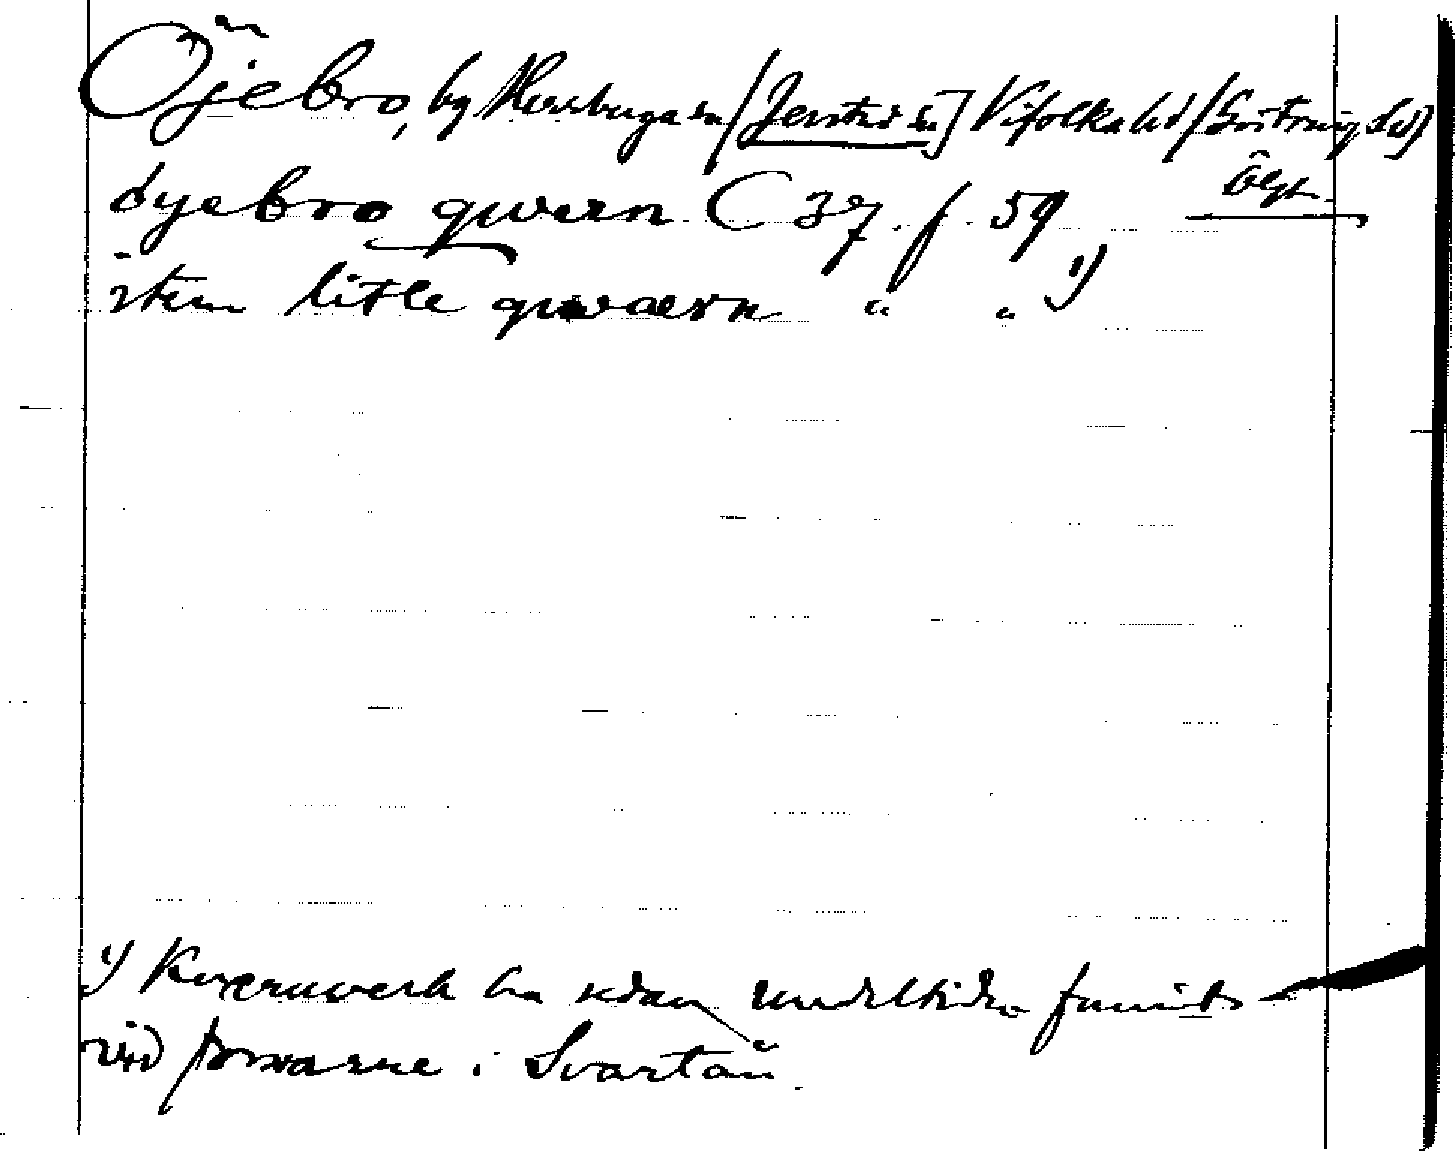 Öjebro, by Herrberga sn [Jerstad sn] Vifolka hd (Göstring hd)
Ögl.
öyebro qwern C 37 f. 59
item litle qwaern " " 1)
1) Kvarnverk ha sedan medeltiden funnits
vid forsarne i Svartån.